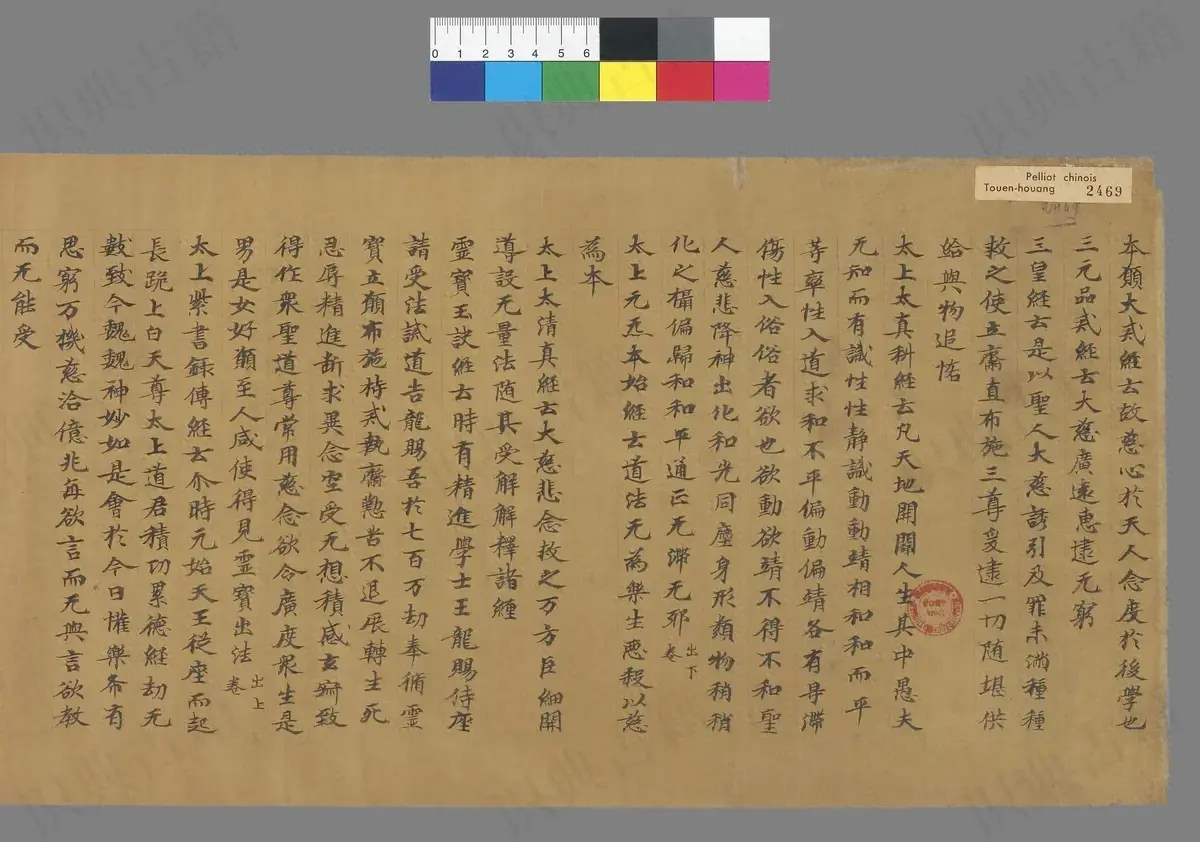 Pelliat chinois
Touen-houang 2469
0 1 2 3 4 5 6
本願大貳經云故慈心於天人念度於後學也
三元品貳經云大慈廣遠惠逮无窮
三皇經云是以聖人大慈誘引及罪未滿種種
救之使立齋直布施三尊爰逮一切随堪供
給與物追悋
太上太真科經云凡天地開闢人生其中愚夫
无知而有識性性静識動動靖相和和而平
等率性入道求和不平偏動偏靖各有㝵滯
傷性入俗俗者欲也欲動欲靖不得不和聖
人慈悲降神出化和光同塵身形類物稍稍
化之攝偏歸和和平通正无滯无邪 出下卷
太上元炁本始經云道法无為樂生惡煞以慈
為本
太上太清真經云大慈悲念救之万方巨細開
導設无量法随其受解解釋諸纏
靈寶玉訣經云時有精進學士王龍賜侍座
請受法誡道告龍賜吾於七百万劫奉脩靈
寶立願布施持貳執齋懃苦不退展轉生死
忍辱精進断求異念空受无想積感玄齊致
得作衆聖道尊常用慈念欲令廣度衆生是
男是女好願至人咸使得見靈寶出法 出上卷
太上紫書籙傳經云尒時元始天王從座而起
長跪上白天尊太上道君積功累德經劫无
數致今巍巍神妙如是會於今日懽樂希有
思窮万機慈洽億兆每欲言而无與言欲教
而无能受